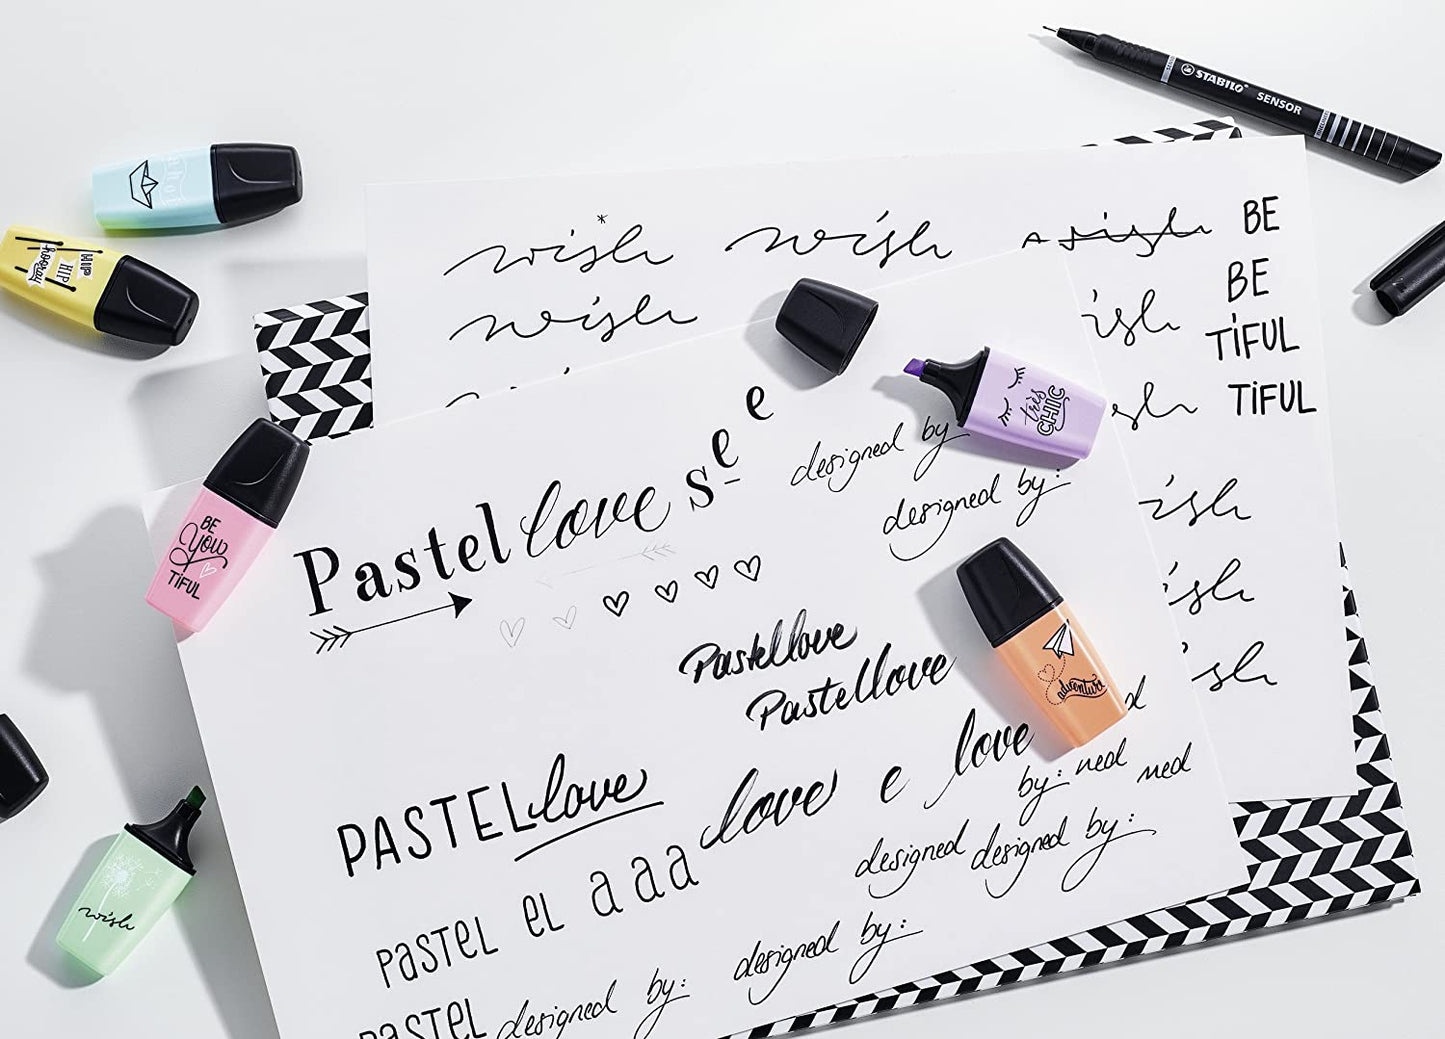 STABILO SENSOR
ahoi
HIP
HIP
hooray
wish wish wish BE
wish
BE
TiFUL
TiFUL
très
CHIC
e
e
s
designed by
designed by:
Pastel love
BE
YOU
TiFUL
Pastellove
Pastellove
adventure
wish
wish
wish
love
love e
by: ned
ned
PASTEL love
designed designed by:
PASTEL EL a a a
designed by:
PASTEL designed by:
wish